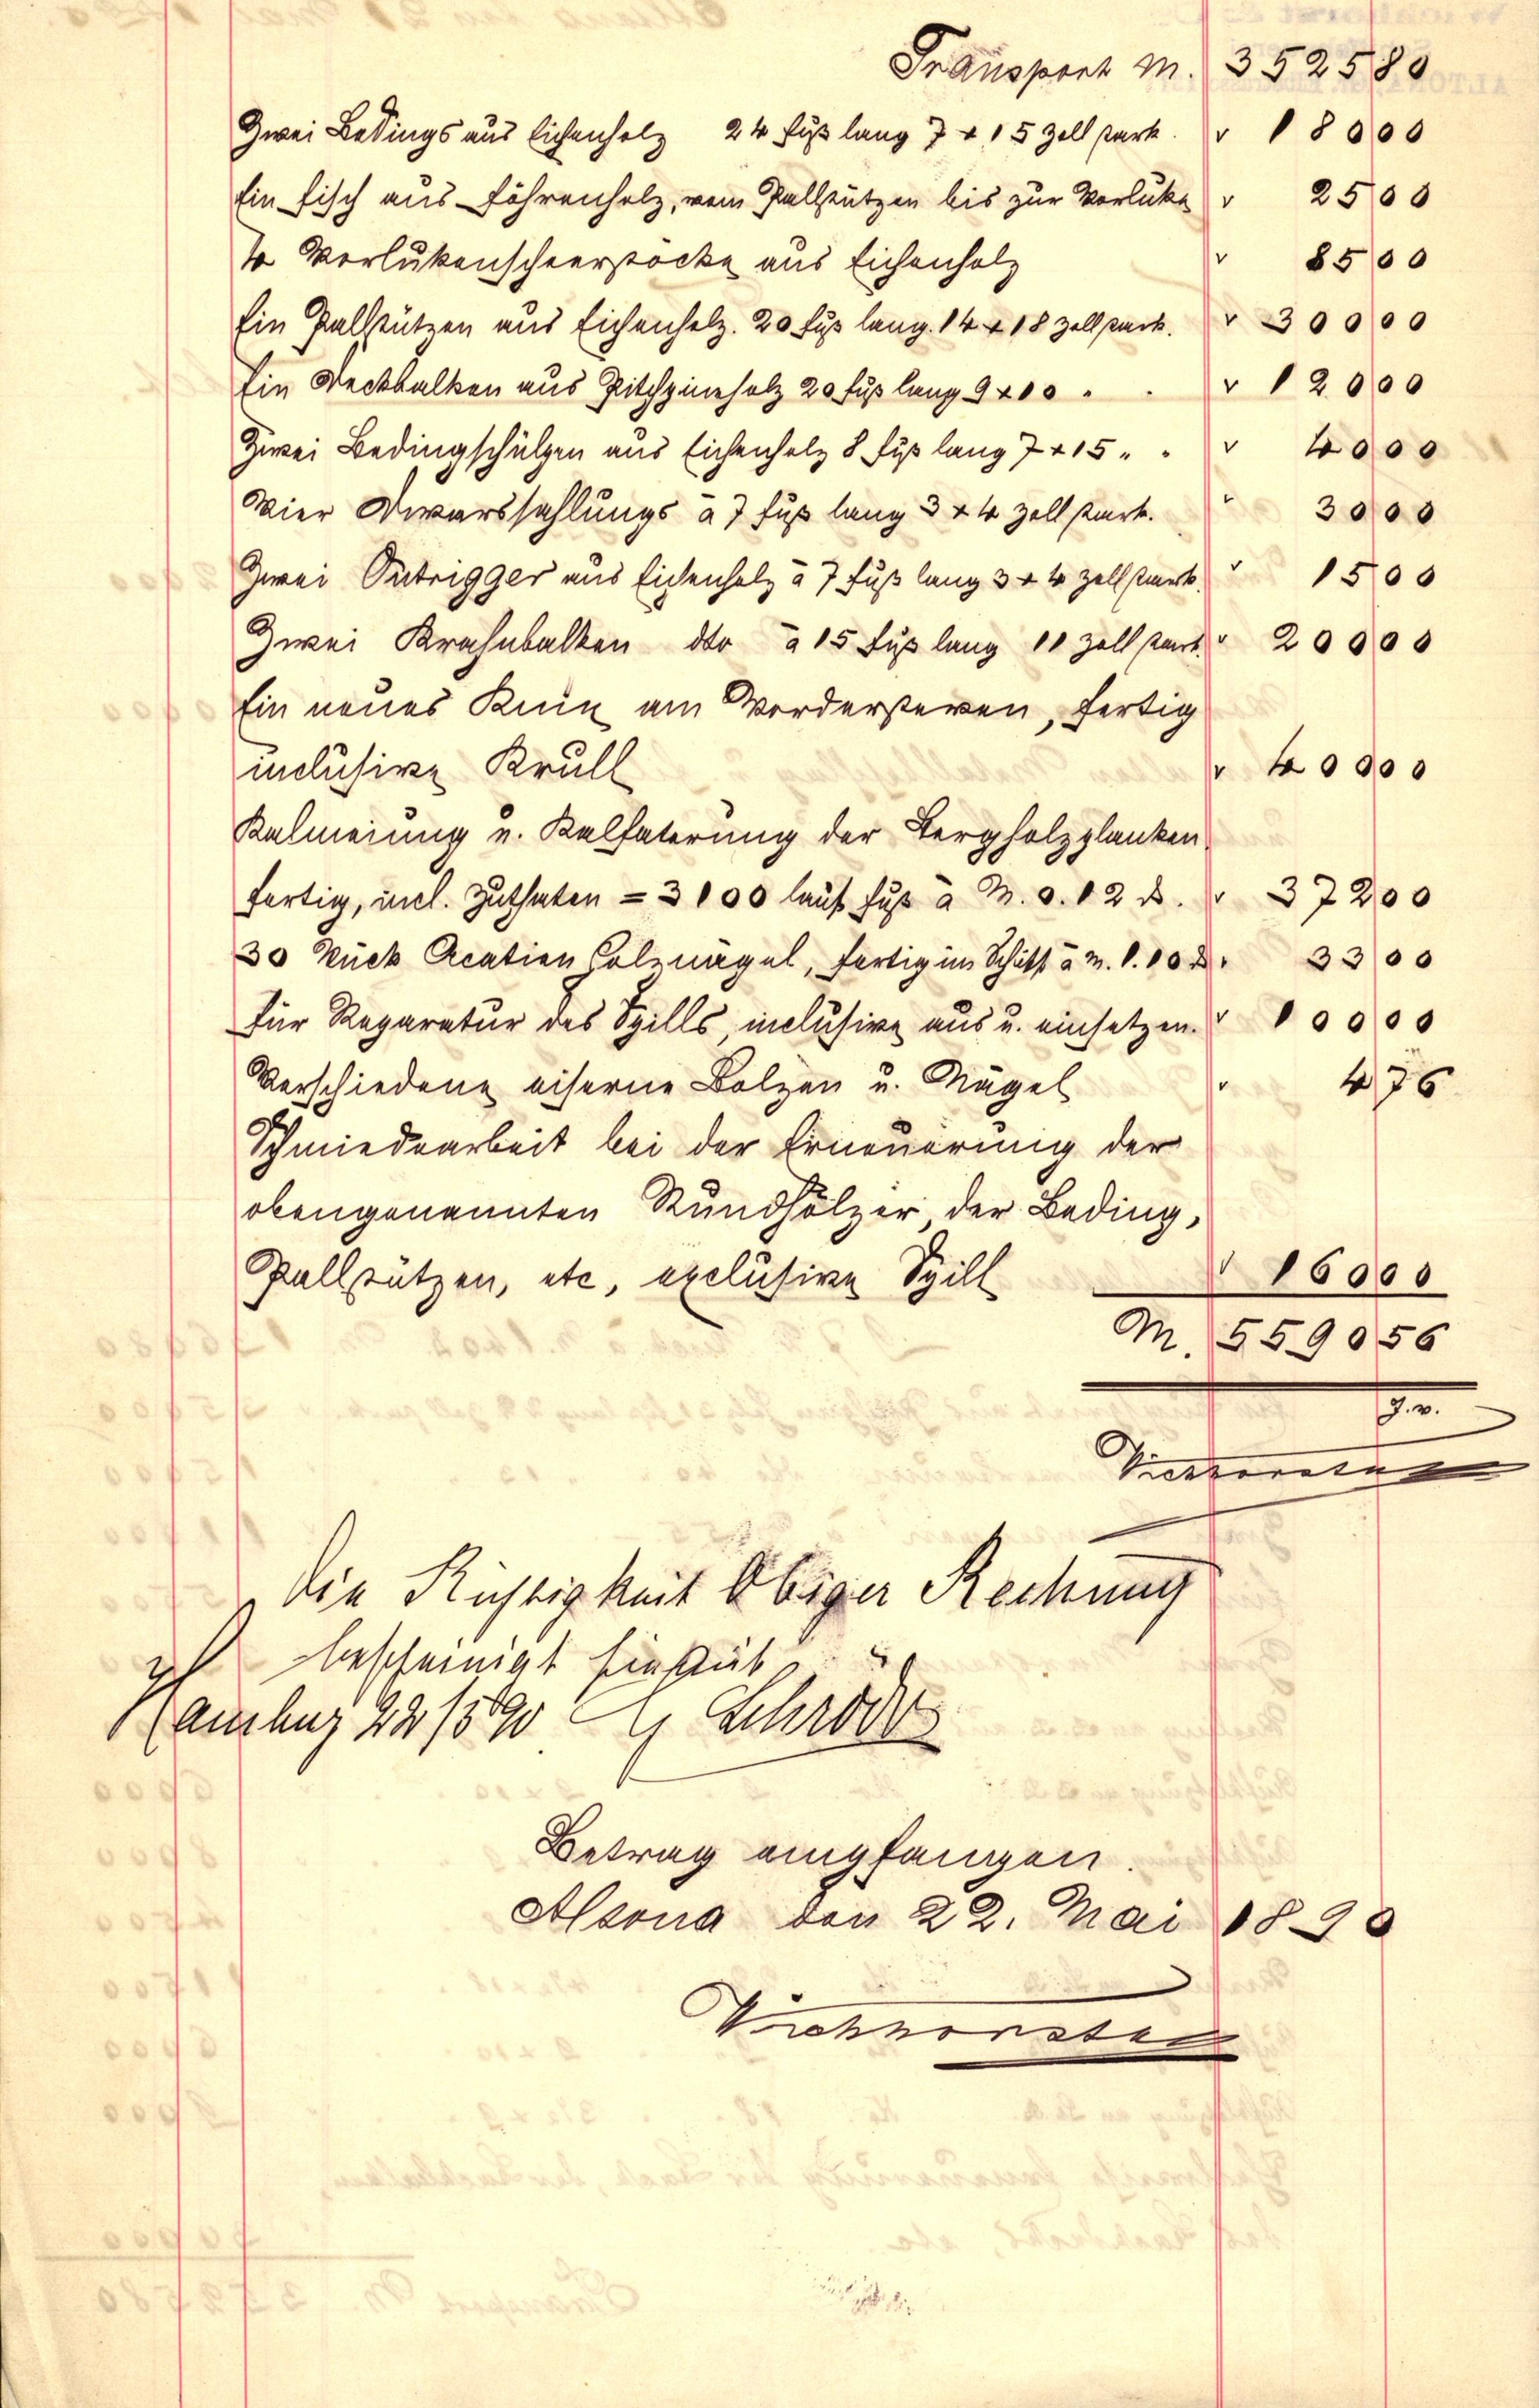 Transport M. 3525 80
Zwei Bedings aus Eichenholz 24 Fuß lang 7 x 15 Zoll stark. " 180 00
Ein Fisch aus Föhrenholz, vom Pallstützen bis zur Vorluke " 25 00
4 Vorlukenscheerstöcke aus Eichenholz " 85 00
Ein Pallstützen aus Eichenholz. 20 Fuß lang. 14 x 18 Zoll stark. " 300 00
Ein Deckbalken aus Pitchpineholz 20 Fuß lang 9 x 10 " " " 120 00
Zwei Bedingschülpen aus Eichenholz 8 Fuß lang 7 x 15 " " " 40 00
Vier Dwarssahlungs à 7 Fuß lang 3 x 4 Zoll stark. " 30 00
Zwei Outrigger aus Eichenholz à 7 Fuß lang 3 x 4 Zoll stark. " 15 00
Zwei Krahnbalken dto à 15 Fuß lang 11 Zoll stark " 200 00
Ein neues Kniee am Vordersteven, fertig
inclusive Krull " 400 00
Kalmeiung u. Kalfaterung der Bergholzplanken
fertig, incl. Zuthaten = 3100 lauf. Fuß à M. 0.12 " 372 00
30 Stück Acatien Holznägel, fertig im Schiff à M. 1.10 " 33 00
Für Reparatur des Spills, inclusive aus u. einsetzen. " 100 00
Verschiedene eiserne Bolzen u. Nägel " 4 76
Schmiedearbeit bei der Erneuerung der
obengenannten Rundhölzer, der Beding,
Pallstützen, etc, exclusive Spill " 160 00
M. 5590 56
Die Richtigkeit Obiger Rechnung
bescheinigt hierdurch
Hamburg 22/5 90 Schröder
Betrag empfangen.
Altona den 22. Mai 1890